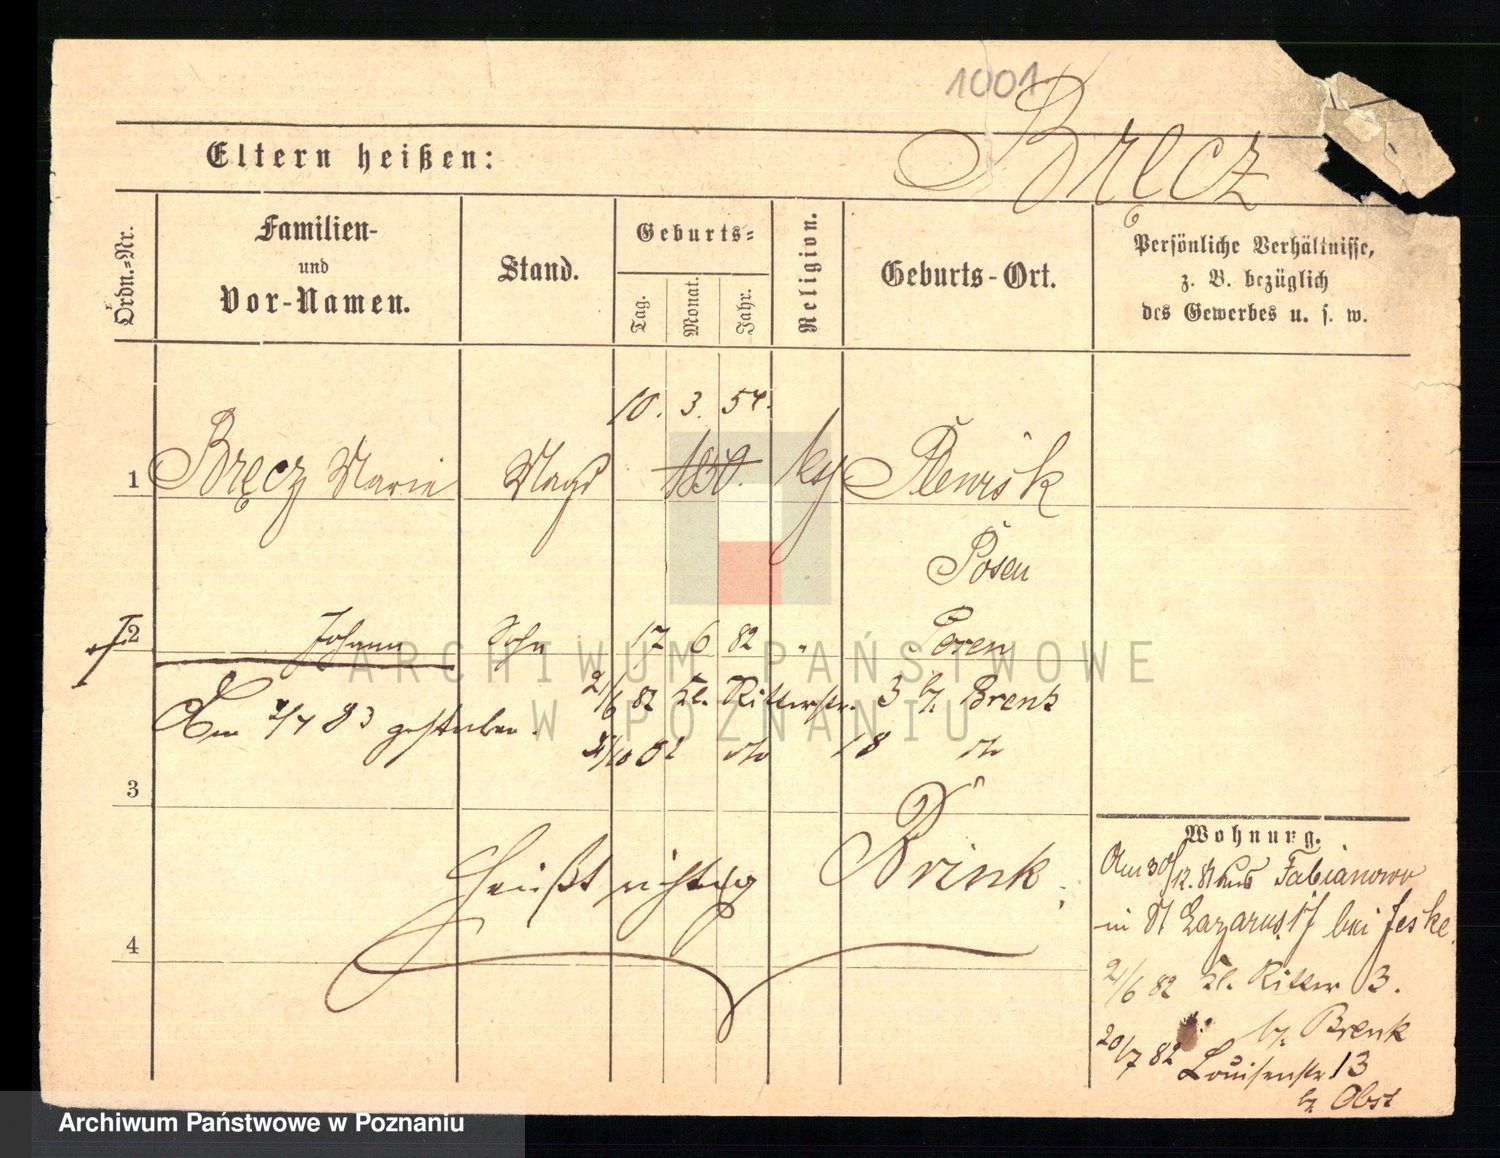 1001
Bręcz
Eltern heißen:
Ordn.-Nr.
Familien-
und
Vor-Namen.
Stand.
Geburts-
Tag.
Monat.
Jahr.
Religion.
Geburts-Ort.
Persönliche Verhältnisse,
z. B. bezüglich
des Gewerbes u. s. w.
10. 3. 54.
1 Bręcz Marie Magd 1850. kg
Posen
2 Johann Sohn 17 6 82 " Posen
2/6 82 Kl. Ritterstr. 3 b. Brenk
Am 4/7 83 gestorben.
82 do 18 do
3
Heißt richtig Brink.
4
Wohnung.
Am 30/12. 81 aus Fabianowo
in St Lazarus 17 bei Jeske.
2/6 82 Kl. Ritter 3.
b. Brenk
20/7 82 Louisenstr 13
b. Obst
ARCHIWUM PAŃSTWOWE
W POZNANIU
Archiwum Państwowe w Poznaniu